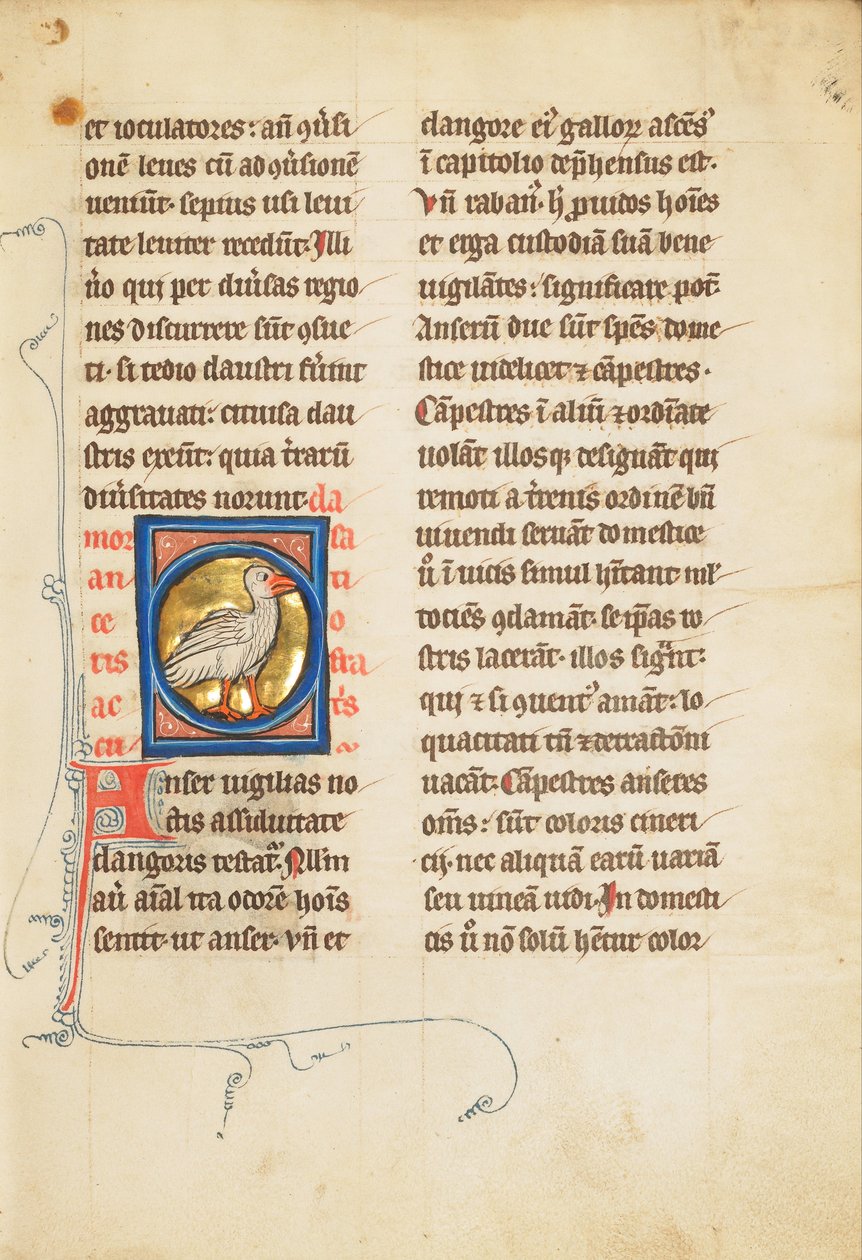 et ioculatores: añ ꝯv̾si
onē leues cū ad ꝯv̾sionē
ueniūt. sepius usi leui
tate leuiter recedūt. Illi
u̾o qui per diu̾sas regio
nes discurrere sūt ꝯsue
ti. si tedio claustri fu̾int
aggrauati: cituisa clau
stris exeūt: quia t̾rarū
diu̾sitates norunt. da
mor sa
an ti
ce o
ris stra
ac t̾s
cu
Anser uigilias no
ctis assiduitate
clangoris testat᷑. Nllm
au̾ aīal ita odorē hoīs
sentit. ut anser. vñ et
clangore ei᷑ galloꝝ ascēs᷑
ī capitolio dep̄hensus est.
Vñ raban᷑. h̾ ꝓuidos hoīes
et erga custodiā suā bene
uigilātes: significare pot̄.
Anserū due sūt sp̄es dome
stice uidelicet ⁊ cāpestres.
Cāpestres ī altū ⁊ ordīate
uolāt illosqꝫ designāt qui
remoti a t̾renis ordinē bñ
uiuendi seruāt domestice
uͦ ī uicis simul hītant ml̾
tociēs ꝯclamāt. se ip̄as ro
stris lacerāt. illos sigᷓnt:
qui ⁊ si ꝯuent᷑ amāt: lo
quacitati tñ ⁊ detractōni
uacāt. Cāpestres anseres
om̄s: sūt coloris cineri
cij. nec aliquā earū uariā
seu uineā uidi. In domesti
cis uͦ nō solū hēt̾ur color